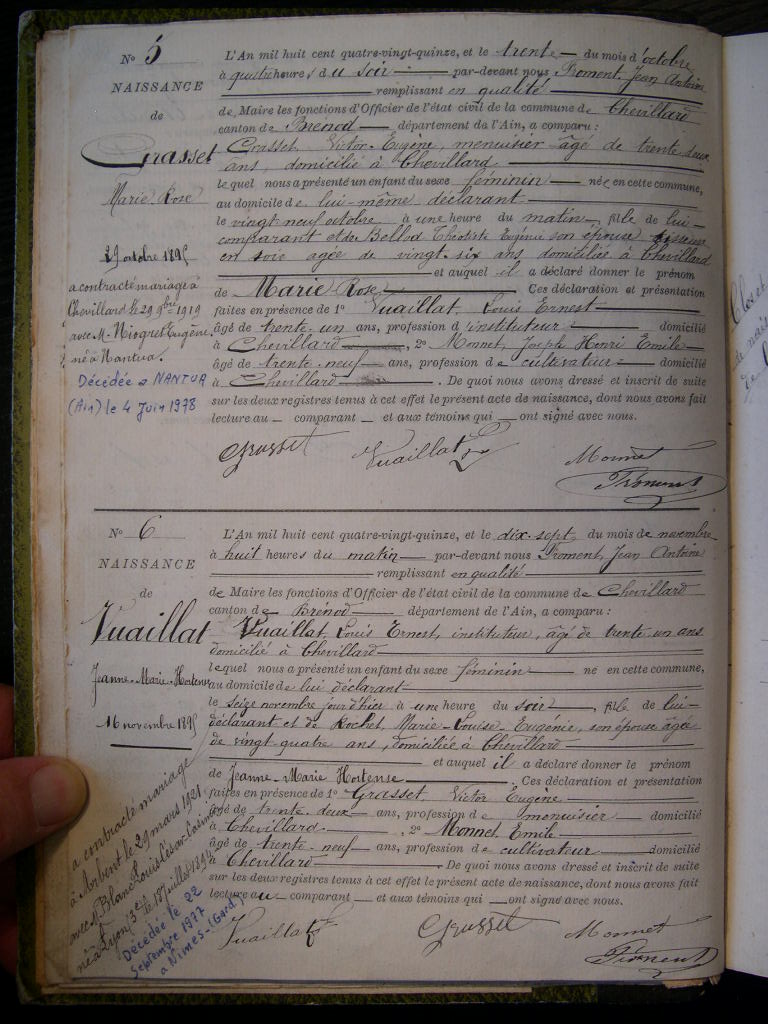 N° 5
NAISSANCE
de
Grasset
Marie Rose
29 octobre 1895
a contracté mariage à
Chevillard le 29 9bre 1919
avec M. Niogret Eugène
né à Nantua.
Décédée à NANTUA
(Ain) le 4 Juin 1978
L'An mil huit cent quatre-vingt-quinze, et le trente du mois d'octobre
à quatre heures du soir par-devant nous Froment, Jean Antoine
remplissant en qualité
de Maire les fonctions d'Officier de l'état civil de la commune de Chevillard
canton de Brénod département de l'Ain, a comparu :
Grasset, Victor-Eugène, menuisier âgé de trente deux
ans, domicilié à Chevillard
lequel nous a présenté un enfant du sexe féminin née en cette commune,
au domicile de lui-même déclarant
le vingt neuf octobre à une heure du matin, fille de lui-
comparant et de Bellod Théotiste Eugénie son épouse tisseuse
en soie agée de vingt-six ans, domiciliée à Chevillard
et auquel il a déclaré donner le prénom
de Marie Rose Ces déclaration et présentation
faites en présence de 1° Vuaillat, Louis Ernest
âgé de trente-un ans, profession d'instituteur domicilié
à Chevillard, 2° Monnet, Joseph Henri Emile
âgé de trente-neuf ans, profession de cultivateur domicilié
à Chevillard. De quoi nous avons dressé et inscrit de suite
sur les deux registres tenus à cet effet le présent acte de naissance, dont nous avons fait
lecture au comparant et aux témoins qui ont signé avec nous.
Grasset Vuaillat Monnet
Froment
N° 6
NAISSANCE
de
Vuaillat
Jeanne-Marie-Hortense
16 novembre 1895
a contracté mariage
à Arbent le 29 mars 1921
avec M. Blanc Louis César Casimir
né à Lyon (3e) le 18 Juillet 1894
Décédée le 22
Septembre 1977
à Nimes-(Gard)
L'An mil huit cent quatre-vingt-quinze, et le dix-sept du mois de novembre
à huit heures du matin par-devant nous Froment, Jean Antoine
remplissant en qualité
de Maire les fonctions d'Officier de l'état civil de la commune de Chevillard
canton de Brénod département de l'Ain, a comparu :
Vuaillat, Louis Ernest, instituteur, âgé de trente un ans
domicilié à Chevillard
lequel nous a présenté un enfant du sexe féminin né en cette commune,
au domicile de lui déclarant
le seize novembre jour d'hier à une heure du soir, fille de lui-
déclarant et de Rochet, Marie-Louise-Eugénie, son épouse âgée
de vingt-quatre ans, domiciliée à Chevillard
et auquel il a déclaré donner le prénom
de Jeanne-Marie Hortense. Ces déclaration et présentation
faites en présence de 1° Grasset, Victor Eugène
âgé de trente-deux ans, profession de menuisier domicilié
à Chevillard, 2° Monnet Emile
âgé de trente-neuf ans, profession de cultivateur domicilié
à Chevillard De quoi nous avons dressé et inscrit de suite
sur les deux registres tenus à cet effet le présent acte de naissance, dont nous avons fait
lecture au comparant et aux témoins qui ont signé avec nous.
Vuaillat Grasset Monnet
Froment